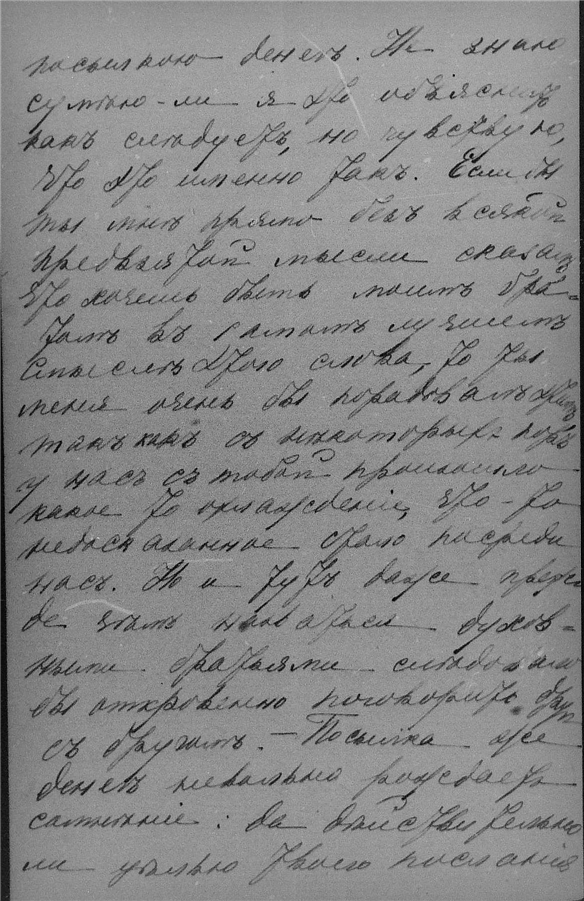 посылкою денегъ. Не знаю
сумѣю-ли я это объяснить
какъ слѣдуетъ, но чувствую,
что это именно такъ. Если бы
ты мнѣ прямо безъ всякой
предвзятой мысли сказалъ
что хочешь быть моимъ бра-
томъ въ самомъ лучшемъ
смыслѣ этого слова, то ты
меня очень бы порадовалъ этимъ
такъ какъ съ нѣкоторыхъ поръ
у насъ съ тобой произошло
какое то охлажденіе, что-то
недосказанное стало посреди
насъ. Но и тутъ даже преж-
де чѣмъ назваться духов-
ными братьями слѣдовало
бы откровенно поговорить другъ
съ другомъ. — Посылка же
денегъ невольно рождаетъ
сомнѣніе: да дѣйствительно
ли цѣлью твоего посланія